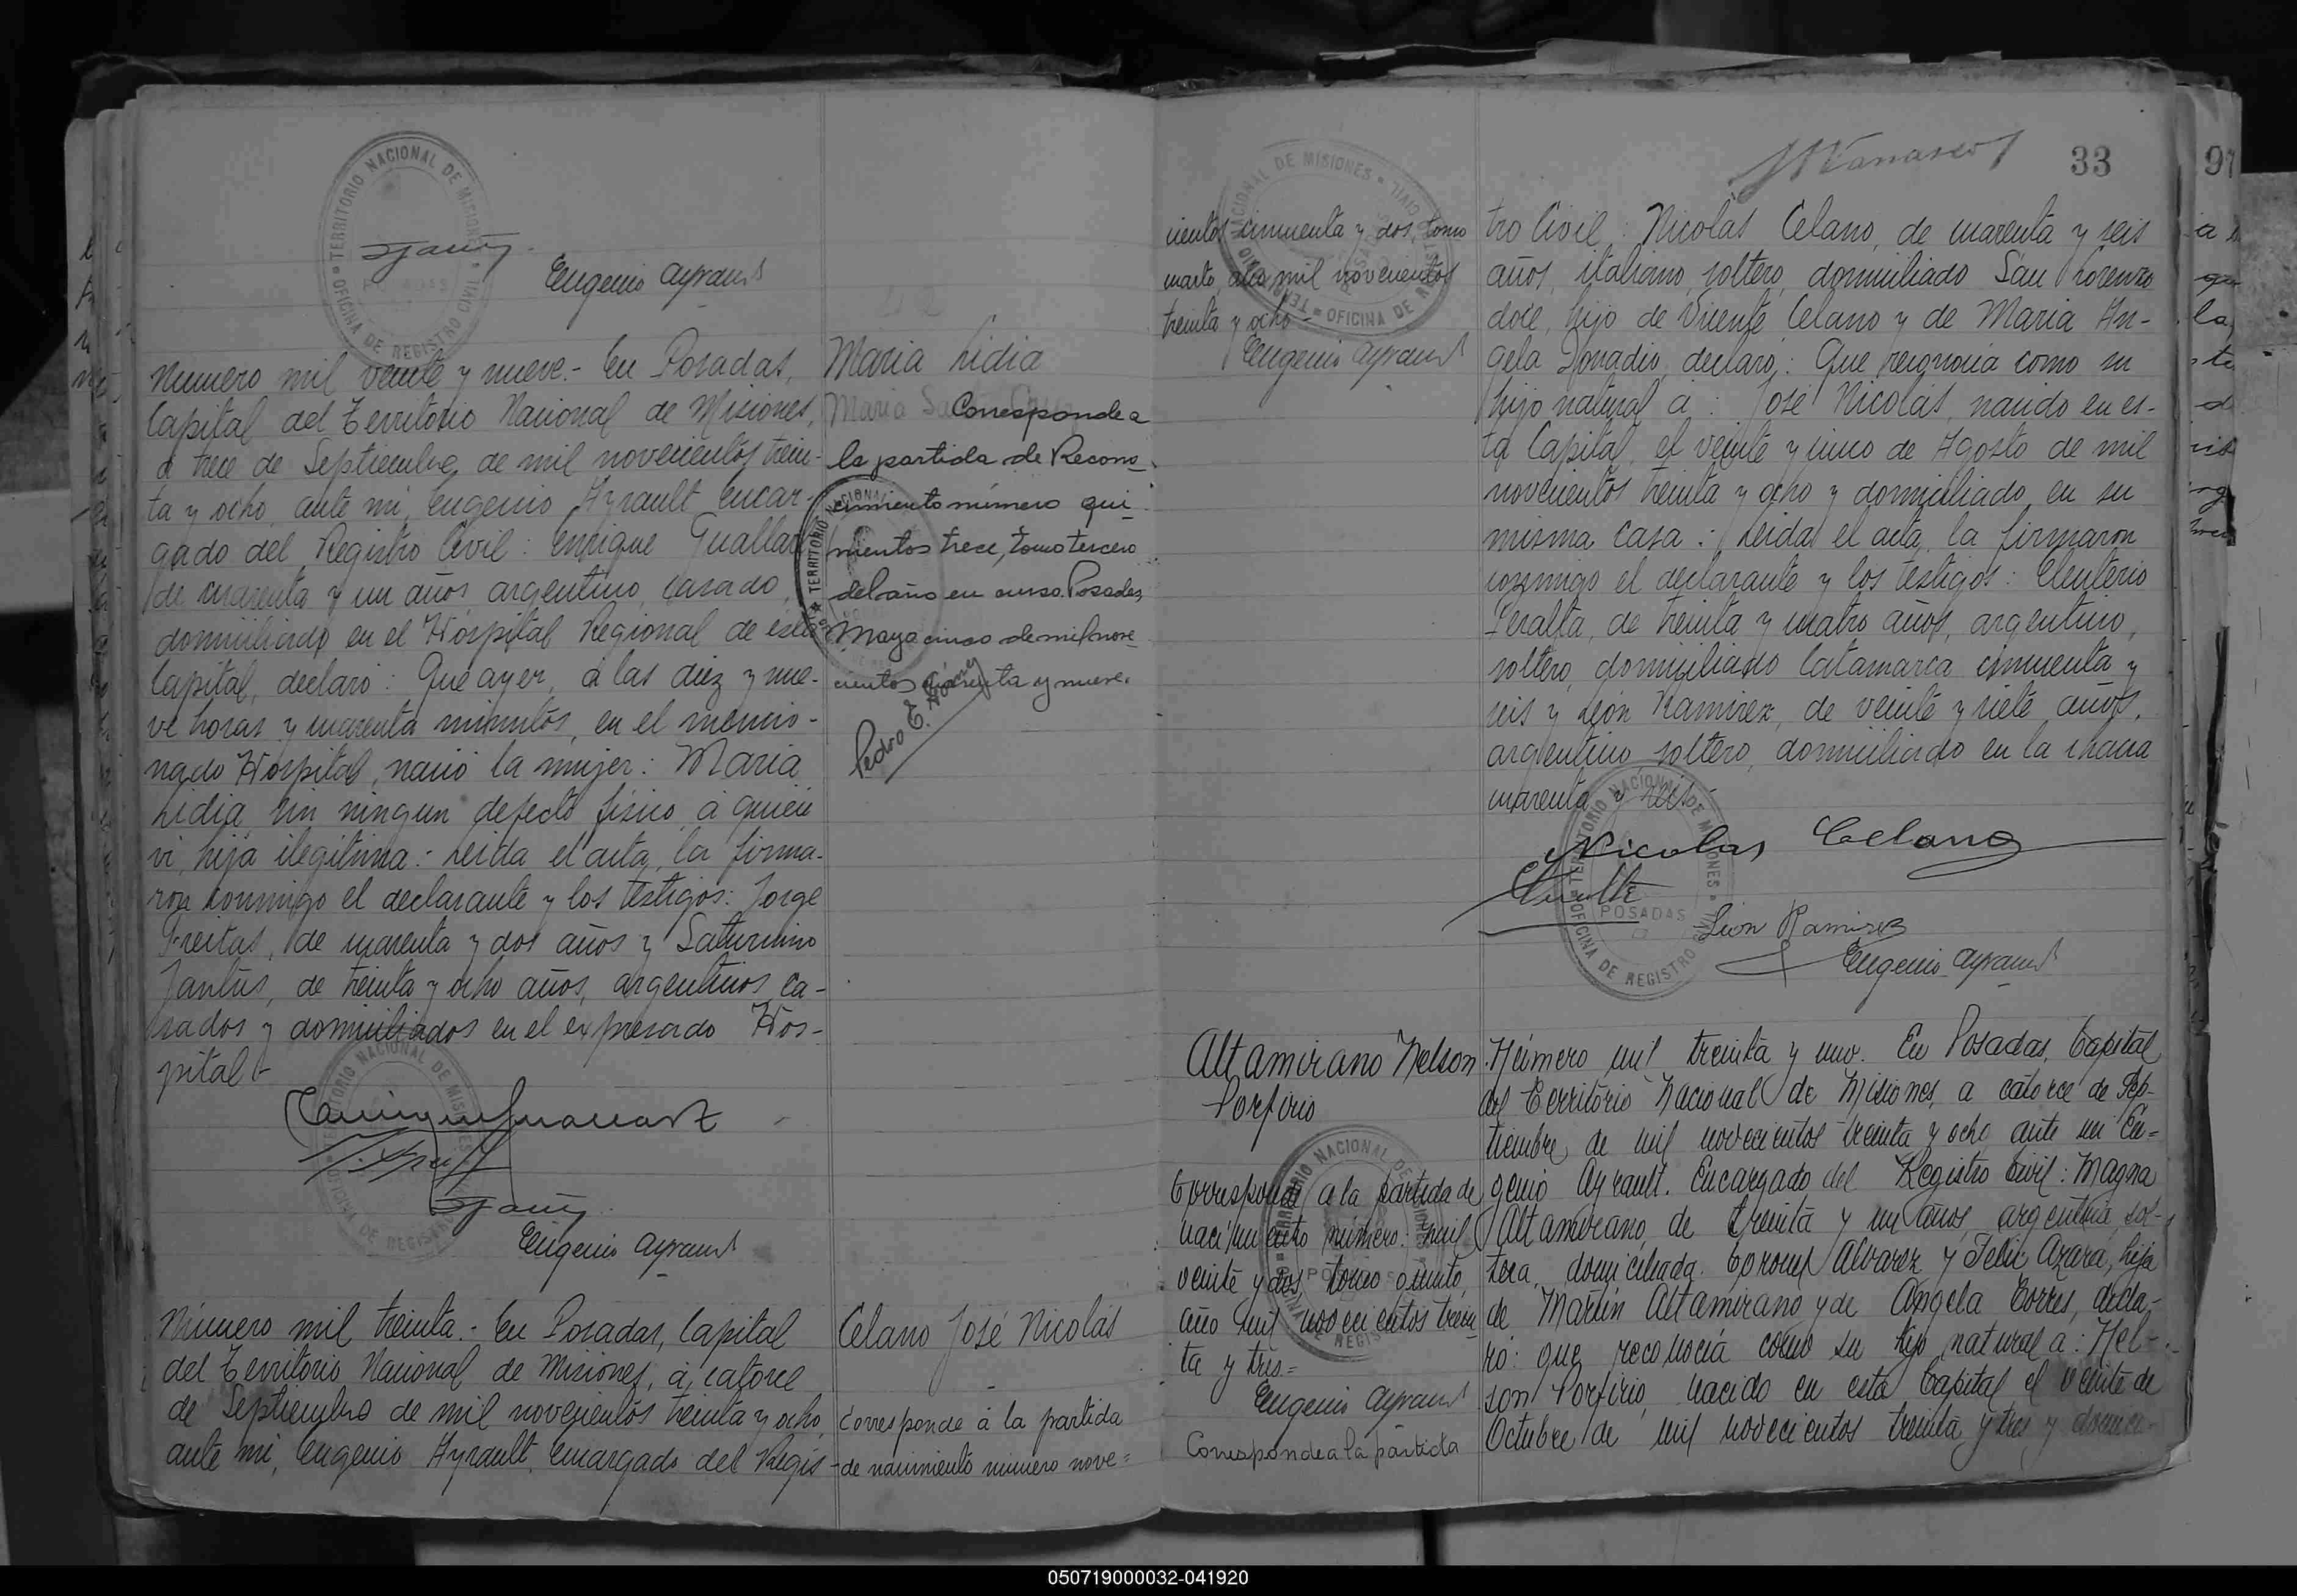 TERRITORIO NACIONAL DE MISIONES
OFICINA DE REGISTRO CIVIL
POSADAS
Eugenio Ayrault
Numero mil veinte y nueve.- En Posadas,
Capital del Territorio Nacional de Misiones,
a trece de Septiembre de mil novecientos trein-
ta y ocho, ante mi, Eugenio Ayrault Encar-
gado del Registro Civil: Enrique Guallart
de cuarenta y un años, argentino, casado,
domiciliado en el Hospital Regional de esta
Capital, declaró: Que ayer, á las diez y nue-
ve horas y cuarenta minutos, en el mencio-
nado Hospital, nació la mujer: Maria
Lidia, sin ningun defecto fisico, á quien
vi, hija ilegitima.- Leida el acta, la firma-
ron conmigo el declarante y los testigos: Jorge
Freitas, de cuarenta y dos años y Saturnino
de treinta y ocho años, argentinos, ca-
sados y domiciliados en el expresado Hos-
pital.-
Eugenio Ayrault
Maria Lidia
Maria
Corresponde a
la partida de Recono_
cimiento número qui_
nientos trece, tomo tercero
del año en curso. Posadas,
Mayo cinco de mil nove_
cientos y nueve.
Pedro E.
Número mil treinta.- En Posadas, Capital
del Territorio Nacional de Misiones, á catorce
de Septiembre de mil novecientos treinta y ocho,
ante mi, Eugenio Ayrault, Encargado del Regis-
Celano José Nicolás
Corresponde á la partida
de nacimiento número nove=
33
97
cientos cincuenta y dos, tomo
cuarto, año mil novecientos
treinta y ocho.-
Eugenio Ayrault
tro Civil: Nicolás Celano, de cuarenta y seis
años, italiano, soltero, domiciliado San Lorenzo
doce, hijo de Vicente Celano y de Maria An-
gela Donadio, declaró: Que reconocia como su
hijo natural a: José Nicolás, nacido en es-
ta Capital, el veinte y cinco de Agosto de mil
novecientos treinta y ocho y domiciliado en su
misma casa: Leida el acta, la firmaron
conmigo el declarante y los testigos: Eleuterio
Peralta, de treinta y cuatro años, argentino,
soltero, domiciliado Catamarca cincuenta y
seis y León Ramirez, de veinte y siete años,
argentino, soltero, domiciliado en la chacra
cuarenta y seis.-
Nicolas Celano
Leon Ramirez
Eugenio Ayrault
Altamirano Nelson
Porfirio
Corresponde a la partida de
nacimiento número: mil
veinte y dos, tomo quinto,
año mil novecientos trein
ta y tres=
Eugenio Ayrault
Corresponde a la partida
Número mil treinta y uno. En Posadas, Capital
del Territorio Nacional de Misiones, a catorce de Sep-
tiembre de mil novecientos treinta y ocho ante mi Eu=
genio Ayrault. Encargado del Registro Civil: Magna
Altamirano, de treinta y un años, argentina, sol-
tera, domiciliada. Coronel Alvarez y Felix Azara, hija
de Martin Altamirano y de Angela Torres, decla-
ró: que reconocía como su hijo natural a: Nel-
son Porfirio, nacido en esta Capital el veinte de
Octubre de mil novecientos treinta y tres y domici-
050719000032-041920